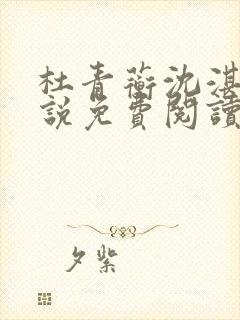 杜青蘅沈湛
說免費閱讀
夕紫